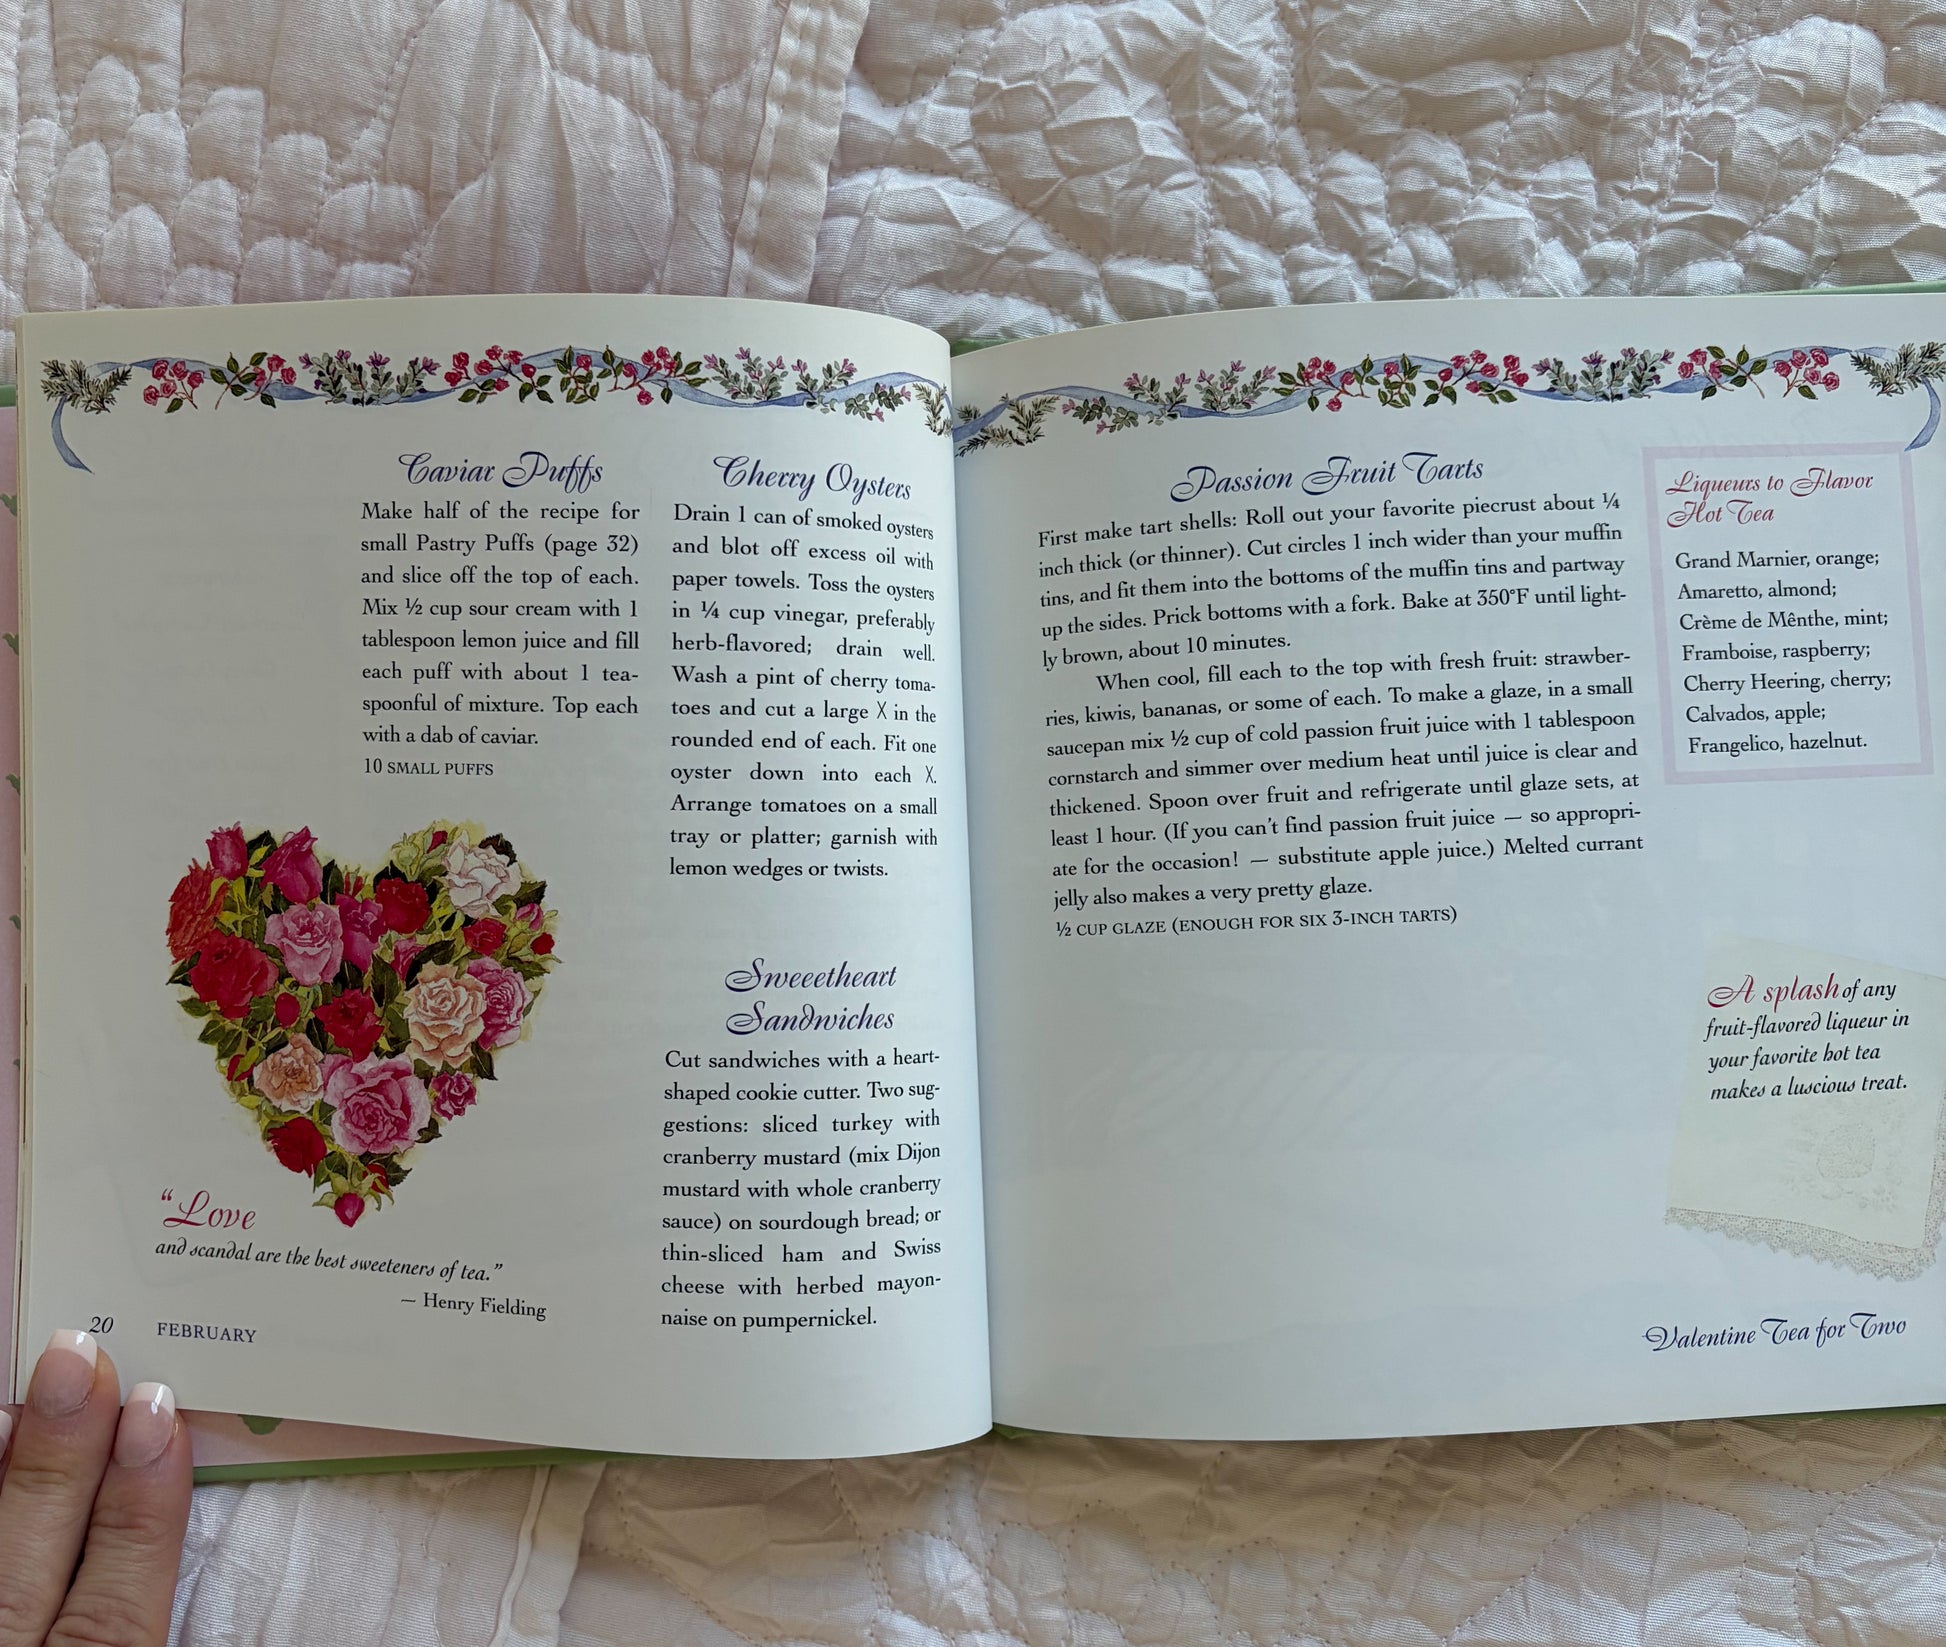 Caviar Puffs
Make half of the recipe for
small Pastry Puffs (page 32)
and slice off the top of each.
Mix ½ cup sour cream with 1
tablespoon lemon juice and fill
each puff with about 1 tea-
spoonful of mixture. Top each
with a dab of caviar.
10 SMALL PUFFS
“Love
and scandal are the best sweeteners of tea.”
— Henry Fielding
20 FEBRUARY
Cherry Oysters
Drain 1 can of smoked oysters
and blot off excess oil with
paper towels. Toss the oysters
in ¼ cup vinegar, preferably
herb-flavored; drain well.
Wash a pint of cherry toma-
toes and cut a large X in the
rounded end of each. Fit one
oyster down into each X.
Arrange tomatoes on a small
tray or platter; garnish with
lemon wedges or twists.
Sweeetheart
Sandwiches
Cut sandwiches with a heart-
shaped cookie cutter. Two sug-
gestions: sliced turkey with
cranberry mustard (mix Dijon
mustard with whole cranberry
sauce) on sourdough bread; or
thin-sliced ham and Swiss
cheese with herbed mayon-
naise on pumpernickel.
Passion Fruit Tarts
First make tart shells: Roll out your favorite piecrust about ¼
inch thick (or thinner). Cut circles 1 inch wider than your muffin
tins, and fit them into the bottoms of the muffin tins and partway
up the sides. Prick bottoms with a fork. Bake at 350°F until light-
ly brown, about 10 minutes.
When cool, fill each to the top with fresh fruit: strawber-
ries, kiwis, bananas, or some of each. To make a glaze, in a small
saucepan mix ½ cup of cold passion fruit juice with 1 tablespoon
cornstarch and simmer over medium heat until juice is clear and
thickened. Spoon over fruit and refrigerate until glaze sets, at
least 1 hour. (If you can’t find passion fruit juice — so appropri-
ate for the occasion! — substitute apple juice.) Melted currant
jelly also makes a very pretty glaze.
½ CUP GLAZE (ENOUGH FOR SIX 3-INCH TARTS)
Liqueurs to Flavor
Hot Tea
Grand Marnier, orange;
Amaretto, almond;
Crème de Mênthe, mint;
Framboise, raspberry;
Cherry Heering, cherry;
Calvados, apple;
Frangelico, hazelnut.
A splash of any
fruit-flavored liqueur in
your favorite hot tea
makes a luscious treat.
Valentine Tea for Two